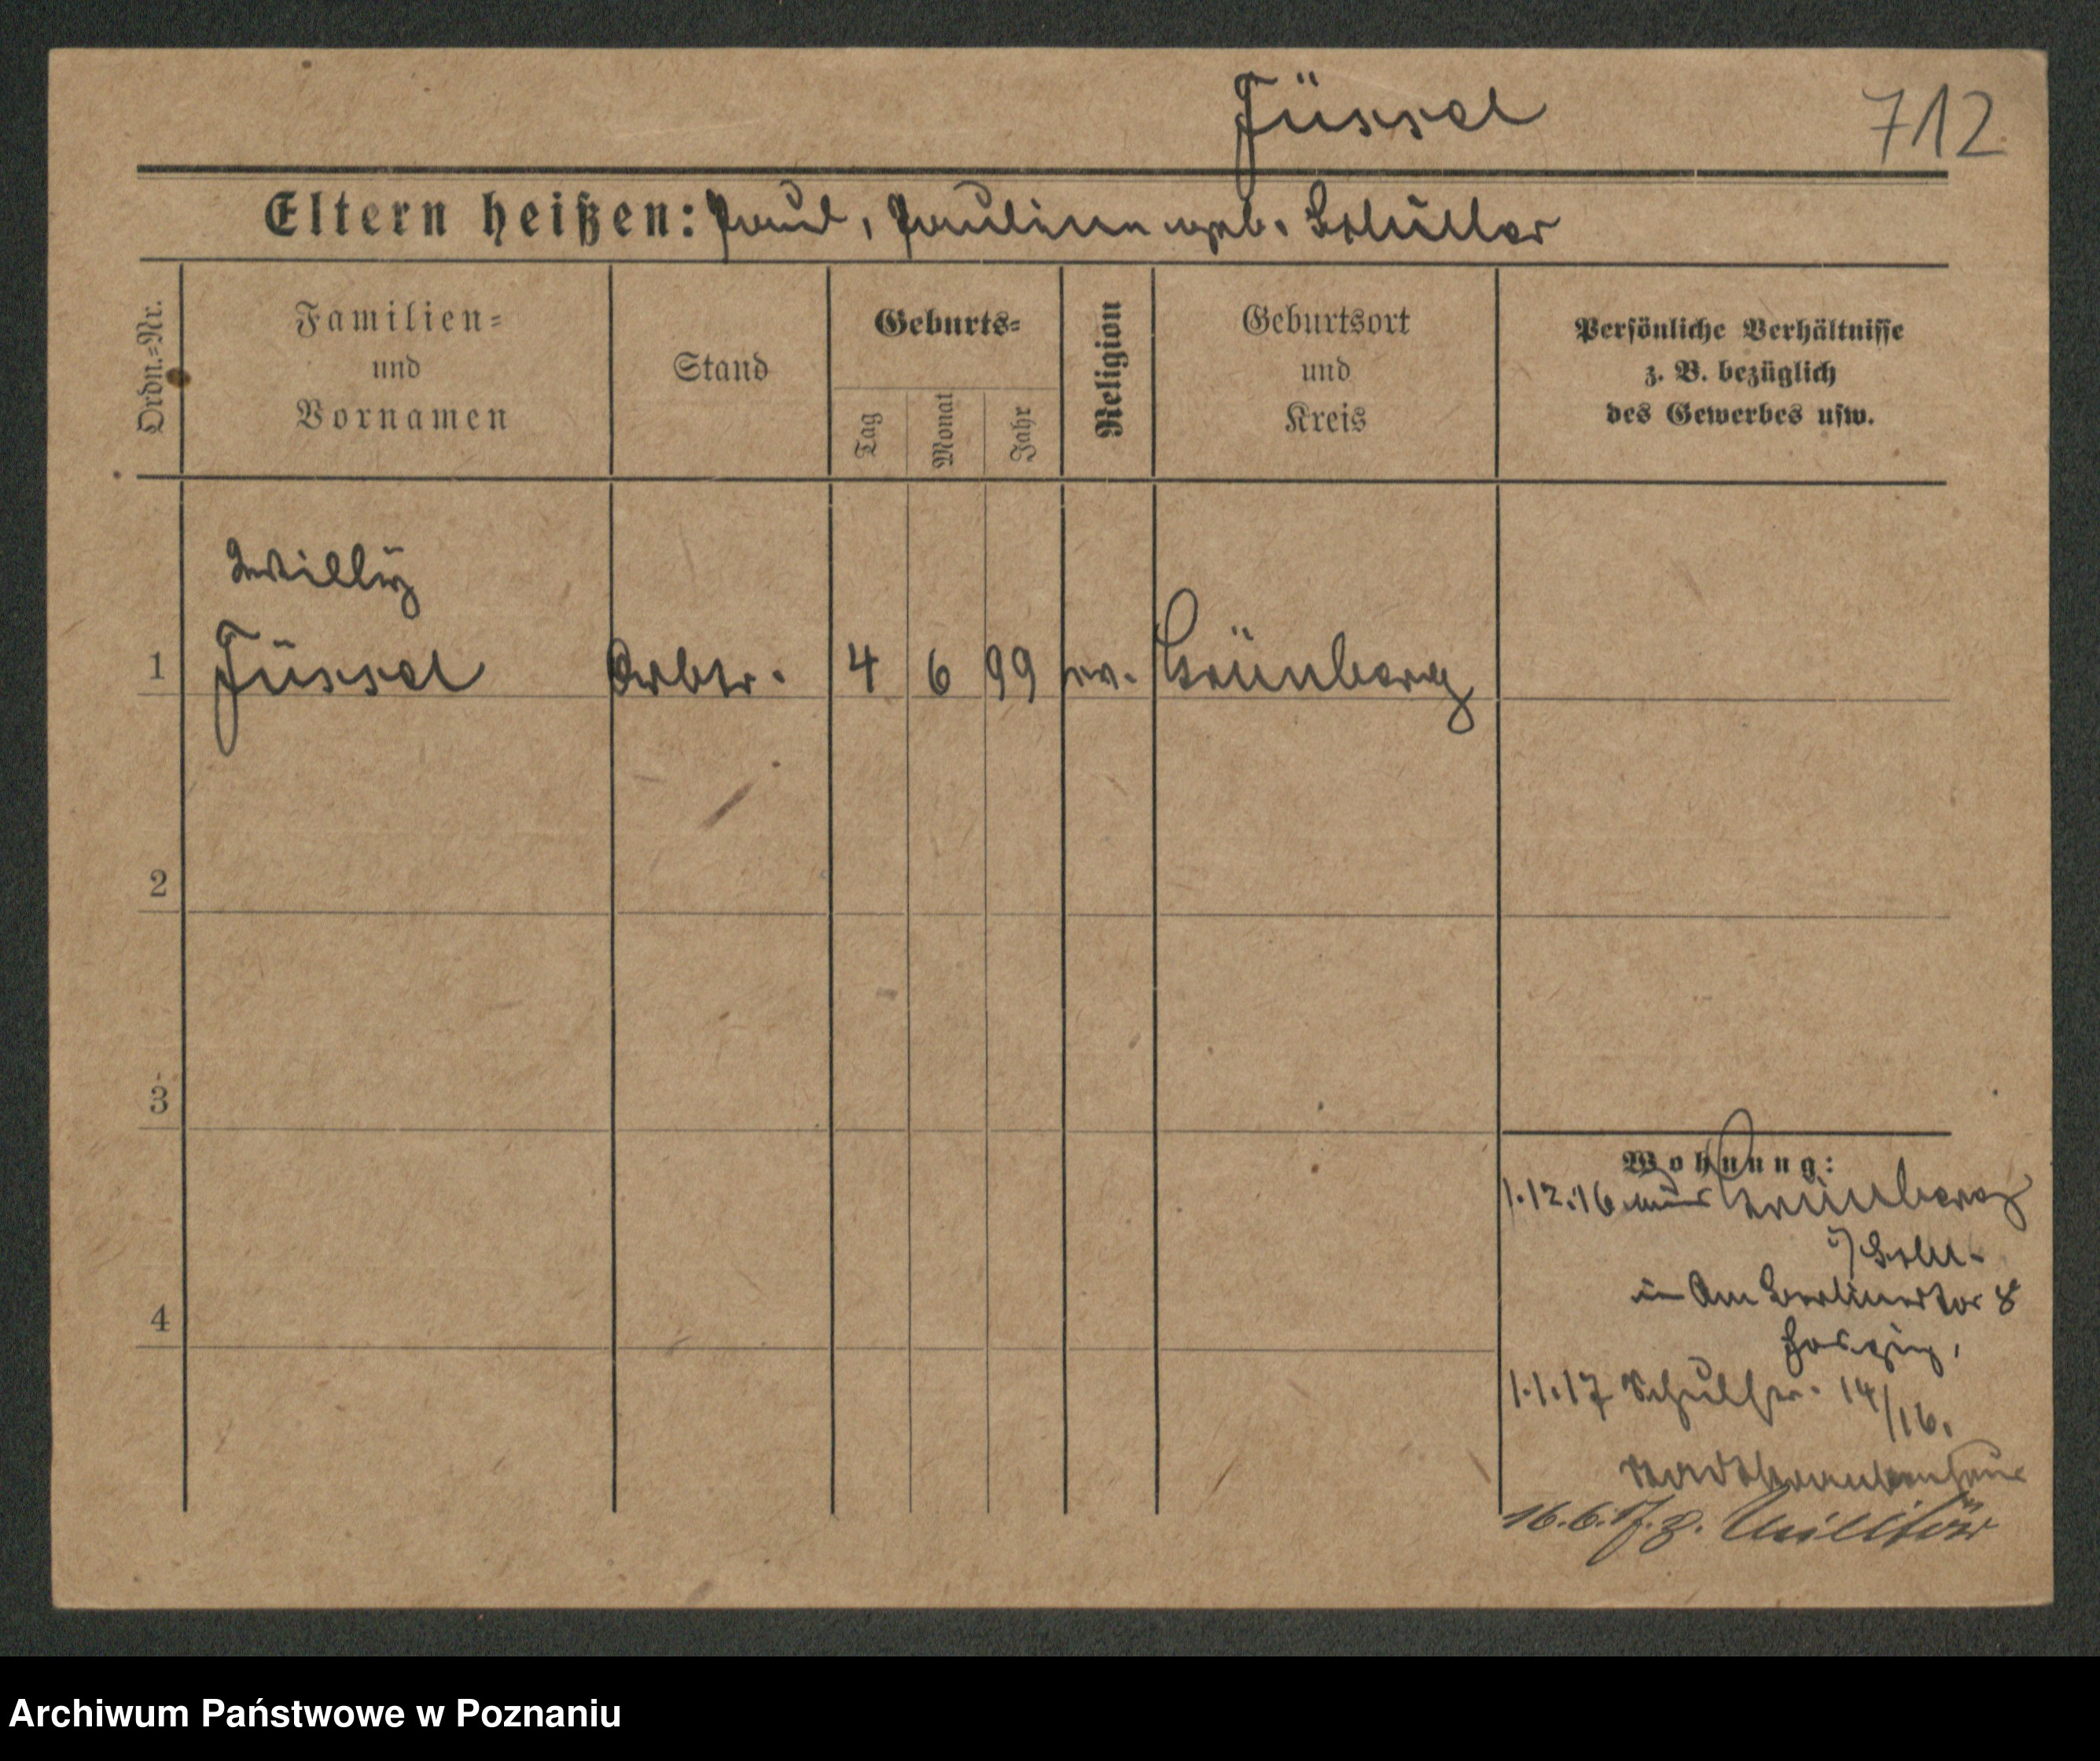 Füssel 712
Eltern heißen: Paul, Pauline geb. Schüller
Ordn.=Nr.
Familien=
und
Vornamen
Stand
Geburts=
Tag
Monat
Jahr
Religion
Geburtsort
und
Kreis
Persönliche Verhältnisse
z. B. bezüglich
des Gewerbes usw.
Willÿ
1 Füssel Arbtr. 4 6 99 ev. Grünberg
2
3
4
Wohnung:
1.12.16 aus Grünberg
i/Schl.
in Am Berlinertor 8
1.1.17 Schulstr. 14/16.
Stadtkrankenhaus
16.6.17. z. Militär
Archiwum Państwowe w Poznaniu